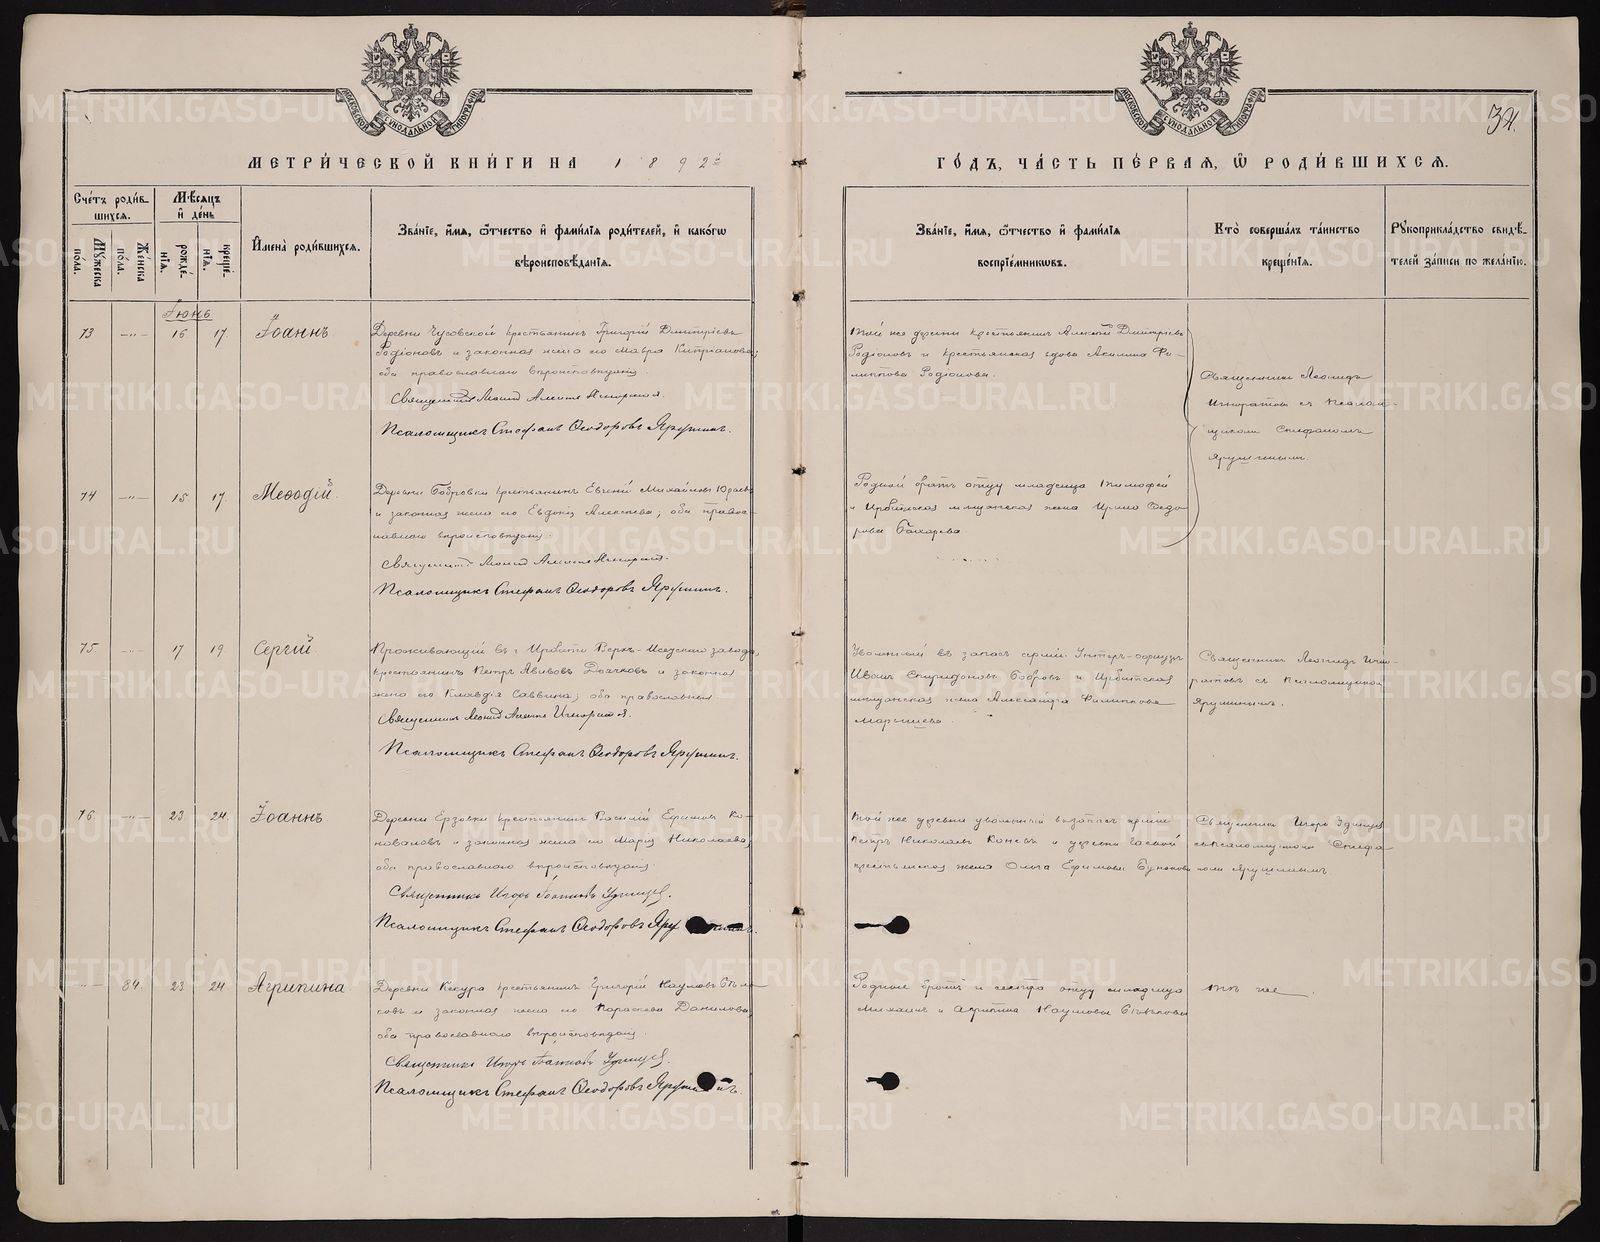 МЕТРИ́ЧЕСКОЙ КНИ́ГИ НА 1892й
ГО́ДЪ, ЧА́СТЬ ПЕ́РВАЯ, Ѿ РОДИ́ВШИХСЯ.
34.
Сче́тъ роди́в-
шихся.
Мѣсяцъ
и҆ де́нь
Му́жеска по́ла.
Же́нска по́ла.
рожде́-
нїя.
креще́-
нїя.
И҆мена̀ роди́вшихся.
Зва́нїе, и҆́мя, ѻ҆́тчество и҆ фами́лїя роди́телей, и҆ како́гѡ
вѣроисповѣ́данїя.
Зва́нїе, и҆́мя, ѻ҆́тчество и҆ фами́лїя
воспрїе́мниковъ.
Кто̀ соверша́лъ та́инство
креще́нїя.
Рꙋкоприкла́дство свидѣ́-
телей за́писи по жела́нїю.
Іюнь
73 —"— 16 17. Іоаннъ
Деревни Чусовской крестьянинъ Григорій Димитріевъ
Родіоновъ и законная жена его Мавра Кипріанова;
оба православнаго вѣроисповѣданія.
Священникъ Леонид Алексѣевъ Игноратовъ
Псаломщикъ Стефанъ Ѳеодоровъ Ярушинъ.
Той же деревни крестьянинъ Алексѣй Димитріевъ
Родіоновъ и крестьянская вдова Акилина Фи-
липпова Родіонова.
Священникъ Леонидъ
Игноратовъ съ псалом-
щикомъ Стефаномъ
Ярушинымъ.
74 —"— 15 17. Меѳодій.
Деревни Бобровки крестьянинъ Евгеній Михайловъ Юрьевъ
и законная жена его Евдокія Алексѣева; оба право-
славнаго вѣроисповѣданія.
Священникъ Леонид Алексѣевъ
Псаломщикъ Стефанъ Ѳеодоровъ Ярушинъ.
Родной братъ отцу младенца Тимофей
и Ирбитская мѣщанская жена Ирина Ѳедо-
рова Бахарева
75 —"— 17 19 Сергій
Проживающій въ г. Ирбити Верхъ-Исетскаго завода,
крестьянинъ Петръ Авивовъ и законная
жена его Клавдія Саввина; оба православные
Священникъ Леонид Алексѣевъ Игноратовъ
Псаломщикъ Стефанъ Ѳеодоровъ Ярушинъ.
Уволенный въ запасъ арміи Унтеръ-офицеръ
Иванъ Спиридоновъ Бобровъ и Ирбитская
мѣщанская жена Александра Филиппова
Священникъ Леонидъ Игно-
ратовъ съ псаломщикомъ
Ярушинымъ.
76. —"— 23 24. Іоаннъ
Деревни Ерзовки крестьянинъ Василій Ефимовъ Ко-
новаловъ и законная жена его Марія Николаева,
оба православнаго вѣроисповѣданія.
Священникъ Игорь Іоанновъ Удинцевъ.
Псаломщикъ Стефанъ Ѳеодоровъ Ярушинъ.
Той же деревни уволенный въ запасъ арміи
Петръ Николаевъ Коневъ и деревни
крестьянская жена Ольга Ефимова
Священникъ Игорь Удинцевъ
съ псаломщикомъ Стефа-
номъ Ярушинымъ.
—"— 84. 23 24 Агрипина
Деревни Кекура крестьянинъ Григорій Наумовъ
и законная жена его Параскева Данилова,
оба православнаго вѣроисповѣданія.
Священникъ Игорь Іоанновъ Удинцевъ.
Псаломщикъ Стефанъ Ѳеодоровъ Ярушинъ.
Родные братъ и сестра отцу младенца
Михаилъ и Агрипина Наумовы
Тѣ же
METRIKI.GASO-URAL.RU